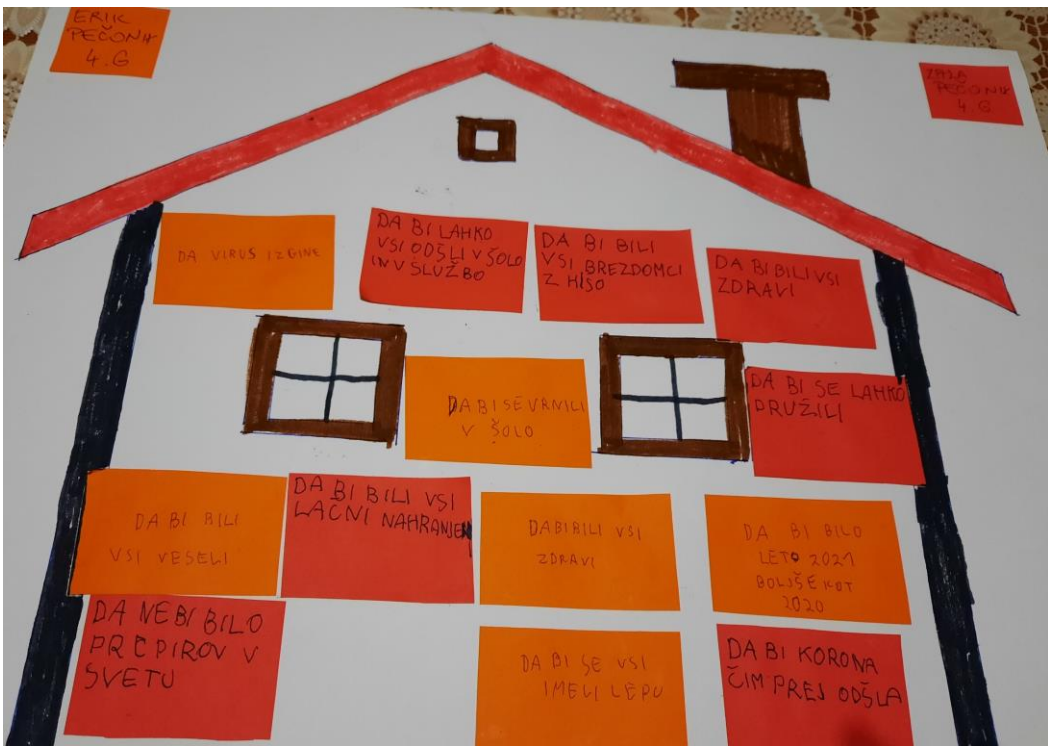 ERIK
PEČONIK
4. G
ZALA
PEČONIK
4. G
DA VIRUS IZGINE
DA BI LAHKO
VSI ODŠLI V ŠOLO
IN V SLUŽBO
DA BI BILI
VSI BREZDOMCI
Z HIŠO
DA BI BILI VSI
ZDRAVI
DA BI SE VRNILI
V ŠOLO
DA BI SE LAHKO
DRUŽILI
DA BI BILI
VSI VESELI
DA BI BILI VSI
LAČNI NAHRANJEN
DA BI BILI VSI
ZDRAVI
DA BI BILO
LETO 2021
BOLJŠE KOT
2020
DA NEBI BILO
PREPIROV V
SVETU
DA BI SE VSI
IMELI LEPO
DA BI KORONA
ČIM PREJ ODŠLA